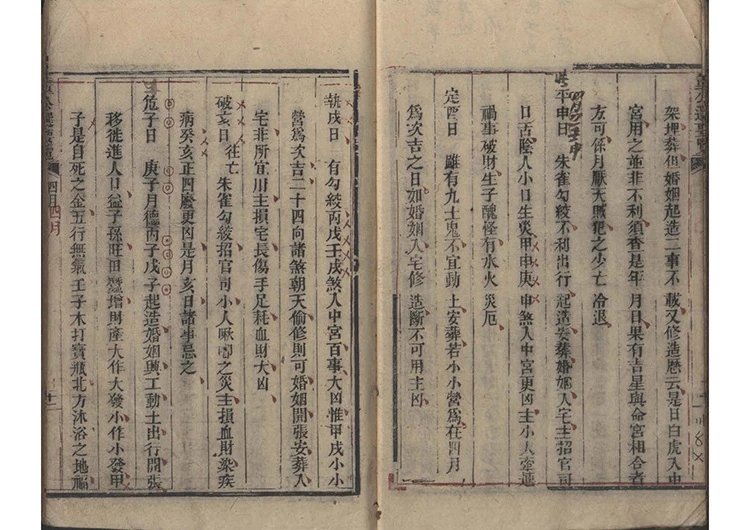 架押葬但婚姻起造二事不載又修造曆云是日白虎入中
宮用之並非不利須查是年月日果有吉星與命宮相合者
方可係月厭天賊犯之少亡冷退
平申日 朱雀勾絞不利出行起造安葬婚姻入宅主招官司
日古陰人小口生災甲申庚申煞入中宮更凶主小人牽連
禍事破財生子醜怪有水火災厄
定酉日 雖有九土鬼不宜動土安葬若小小營為在四月
為次吉之日如婚姻入宅修造斷不可用主凶
執戌日 有勾絞丙戌壬戌煞入中宮百事大凶惟甲戌小小
營為次吉二十四向諸煞朝天偷修則可婚姻開張安葬入
宅非所宜用主損宅長傷手足耗血財大凶
破亥日 往亡 朱雀勾絞招官司小人啾唧之災主損血財染疾
病癸亥正四廢更凶是月亥日諸事忌之
危子日 庚子月德丙子戊子起造婚姻興工動土出行開張
移徙進人口益子孫旺田蠶增財產大作大發小作小發甲
子是自死之金五行無氣壬子木打寶瓶北方沐浴之地福
四月 四月